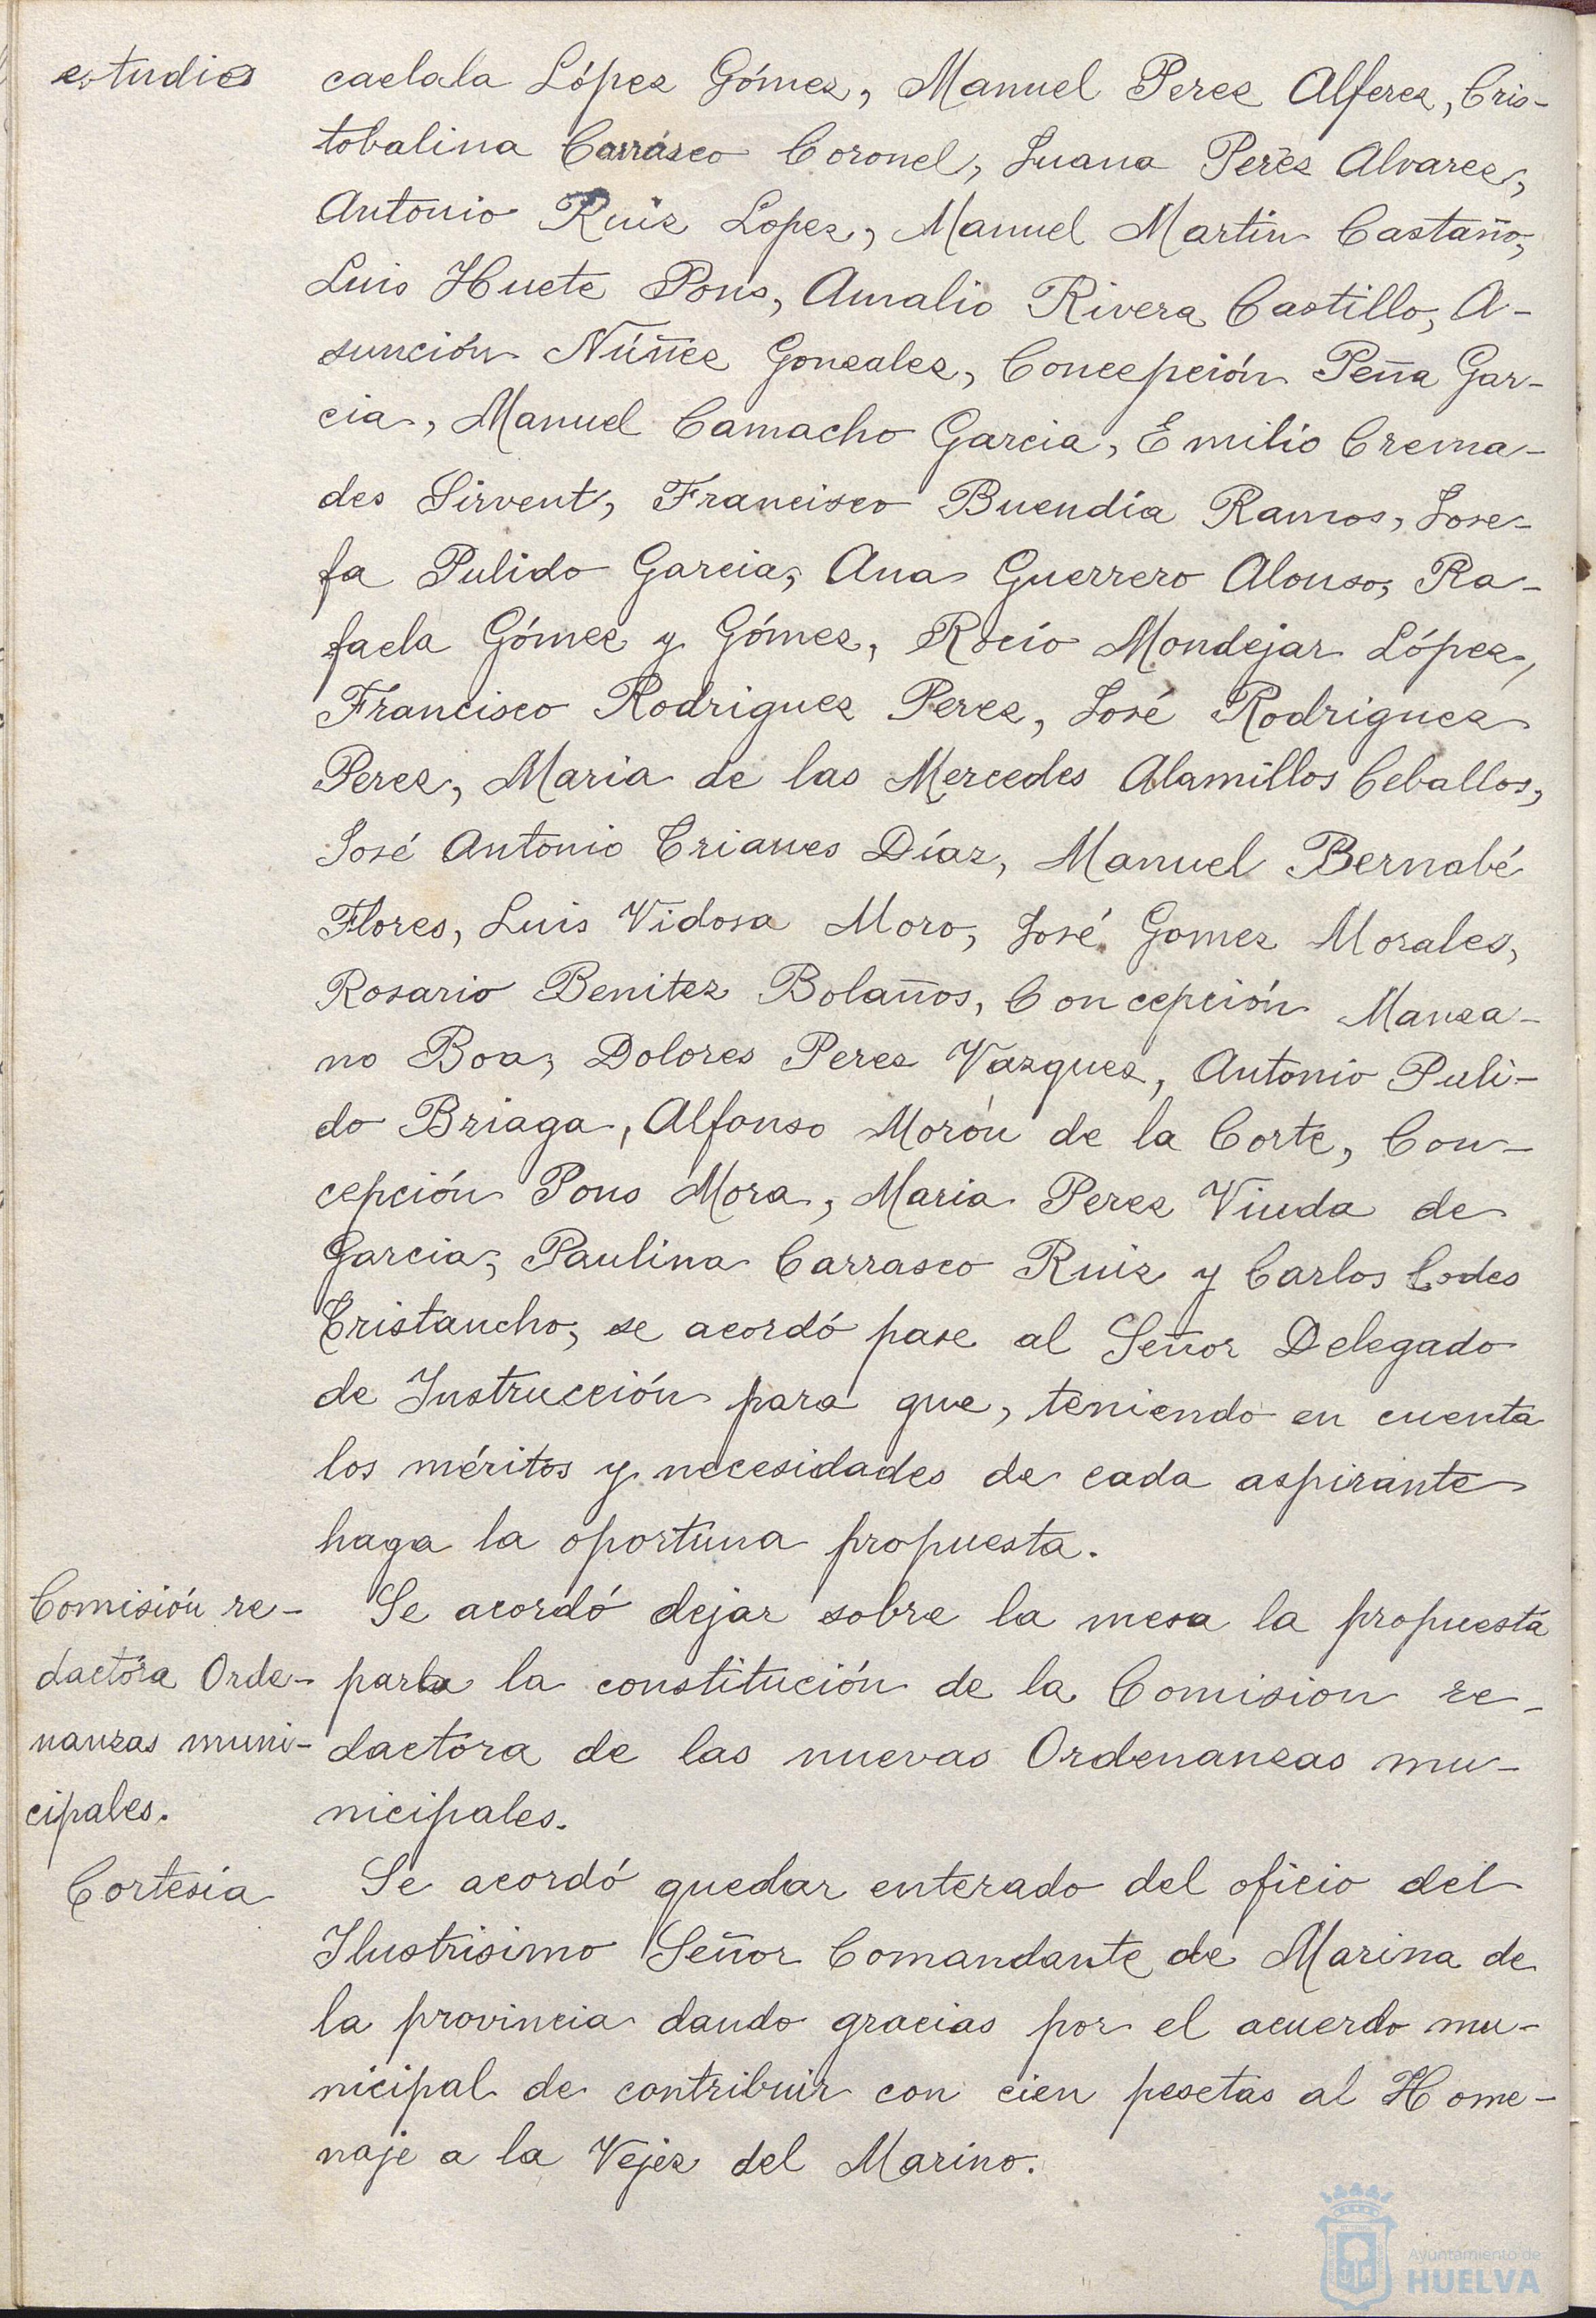 estudios
caelala López Gómez, Manuel Perez Alferez, Cris-
tobalina Carrásco Coronel, Juana Peréz Alvarez,
Antonio Ruiz Lopez, Manuel Martín Castaño,
Luis Huete Pons, Amalio Rivera Castillo, A-
sunción Núñez Gonzalez, Concepción Peña Gar-
cia, Manuel Camacho Garcia, Emilio Crema-
des Sirvent, Francisco Buendía Ramos, Jose-
fa Pulido Garcia, Ana Guerrero Alonso, Ra-
faela Gómez y Gómez, Rocío Mondejar López,
Francisco Rodriguez Perez, José Rodriguez
Perez, Maria de las Mercedes Alamillos Ceballos,
José Antonio Crianes Díaz, Manuel Bernabé
Flores, Luis Vidosa Moro, José Gomez Morales,
Rosario Benitez Bolaños, Concepción Manza-
no Boa, Dolores Perez Vazquez, Antonio Puli-
do Briaga, Alfonso Morón de la Corte, Con-
cepción Pons Mora, Maria Perez Viuda de
Garcia, Paulina Carrasco Ruiz y Carlos Codes
Cristancho, se acordó pase al Señor Delegado
de Instrucción para que, teniendo en cuenta
los méritos y necesidades de cada aspirante
haga la oportuna propuesta.
Comisión re-
dactora Orde-
nanzas muni-
cipales.
Se acordó dejar sobre la mesa la propuesta
para la constitución de la Comision re-
dactora de las nuevas Ordenanzas mu-
nicipales.
Cortesía
Se acordó quedar enterado del oficio del
Ilustrisimo Señor Comandante de Marina de
la provincia dando gracias por el acuerdo mu-
nicipal de contribuir con cien pesetas al Home-
naje a la Vejez del Marino.
Ayuntamiento de
HUELVA